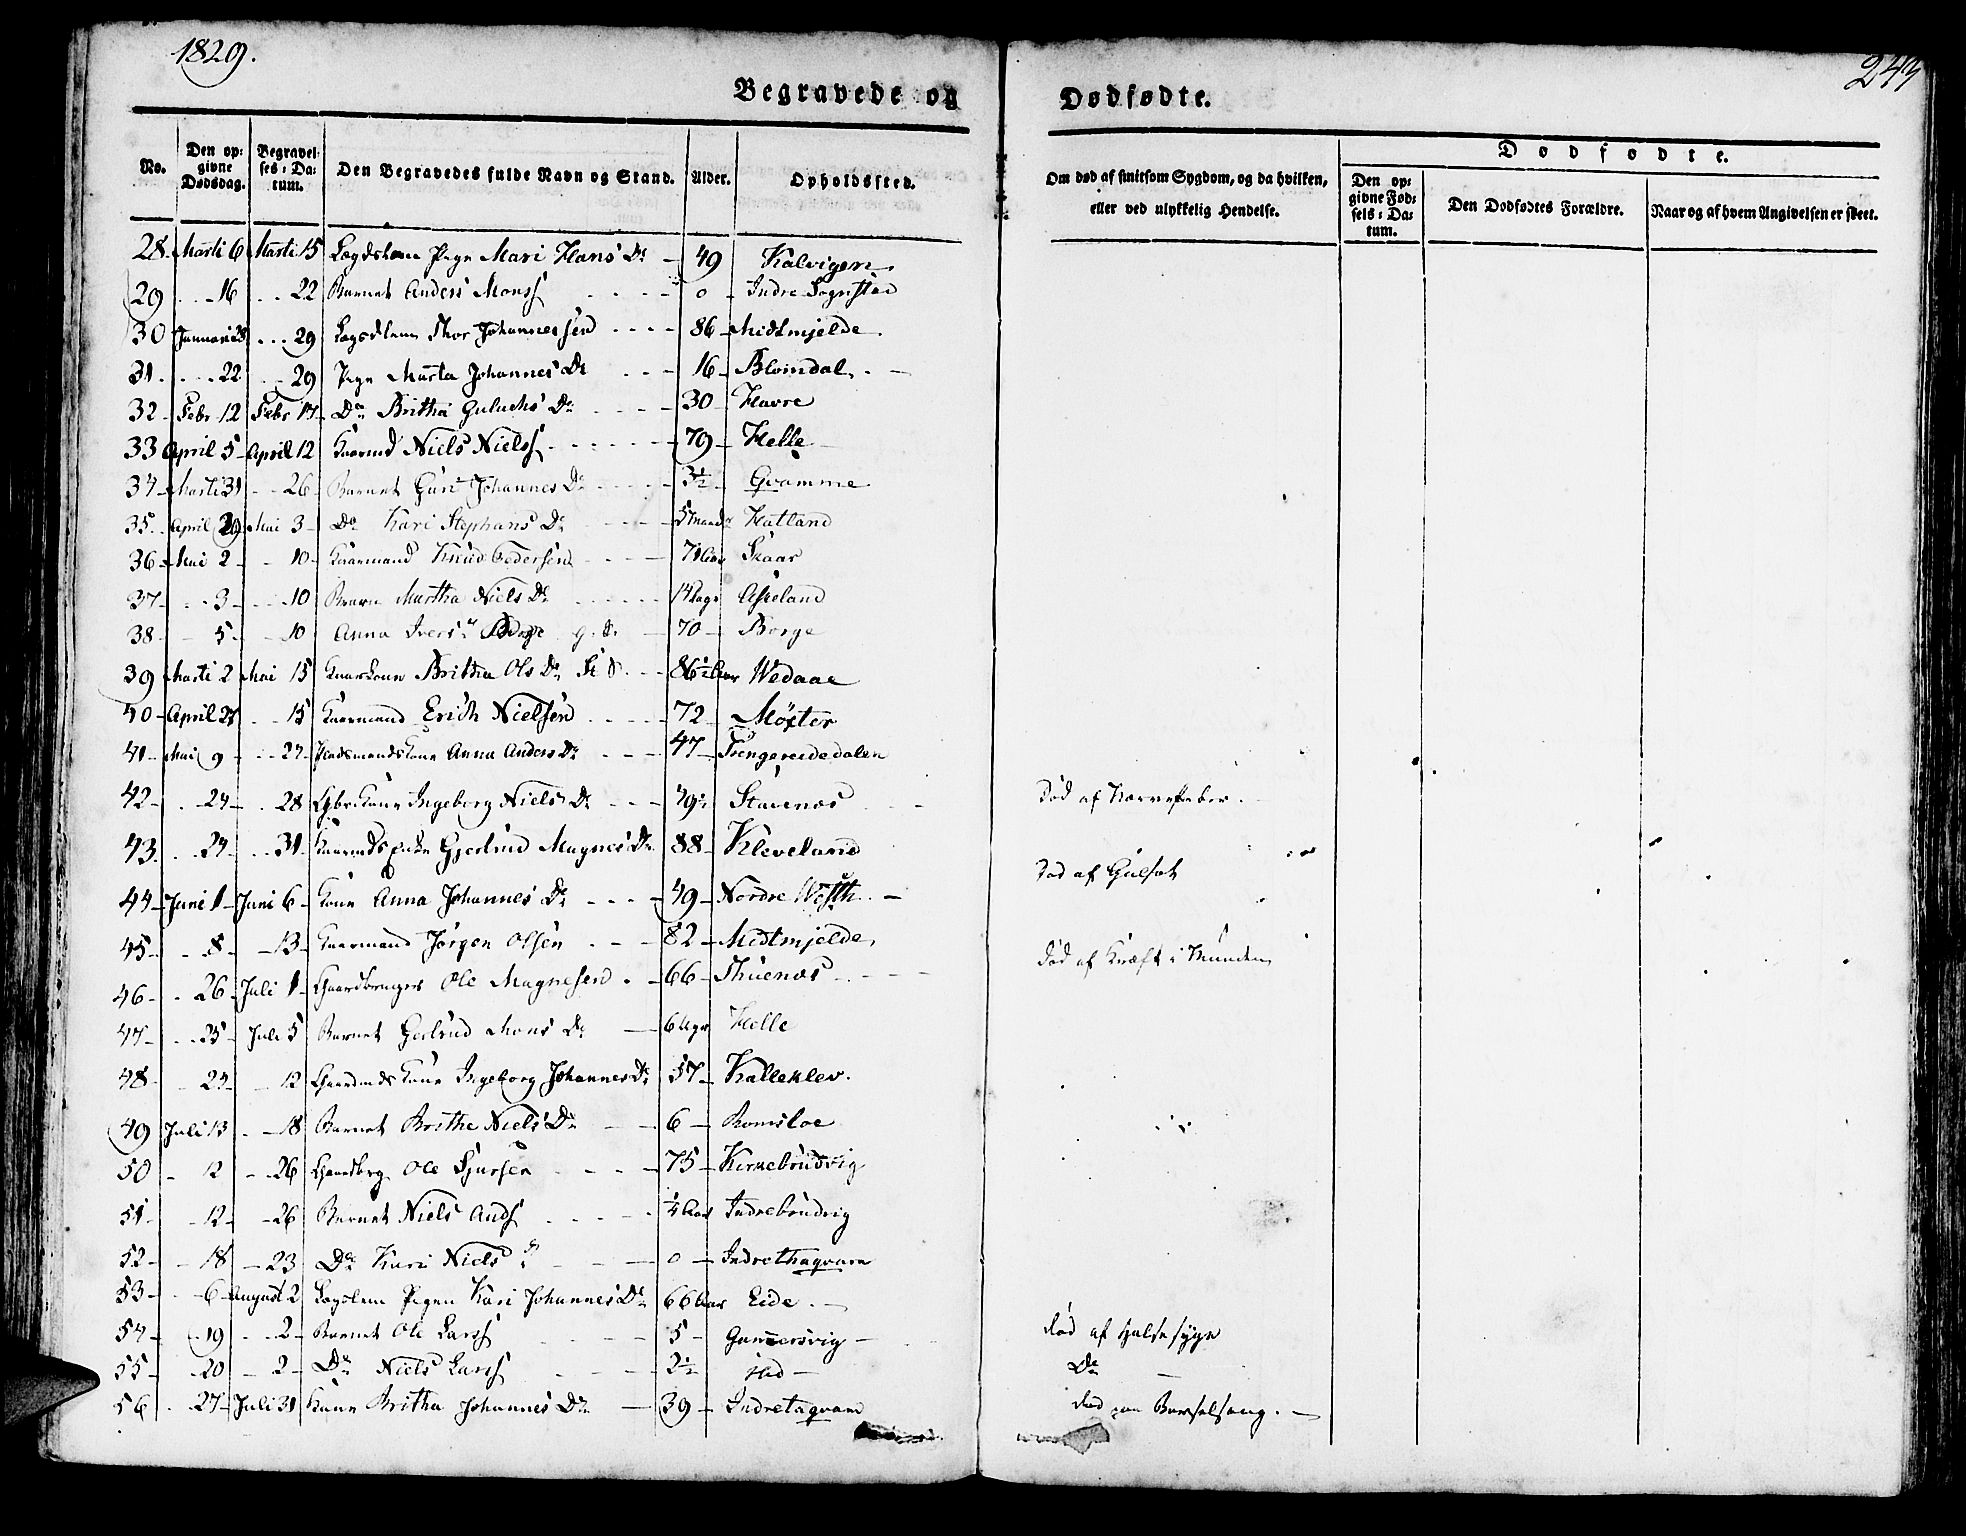 1829.
243
Begravede og Dødfødte.
No. Den opgivne Dødsdag. Begravelses-Datum. Den Begravedes fulde Navn og Stand. Alder. Opholdssted. Om død af smitsom Sygdom, og da hvilken, eller ved ulykkelig Hendelse. Dødfødte. Den opgivne Fødsels-Datum. Den Dødfødtes Forældre. Naar og af hvem Angivelsen er skeet.
28. Marti 6 Marti 15 Pige Mari Hans Dr 49 Kalvigen
29 16 22 Barnet Anders Monss 0 Indre Sognstad
30 Januari 29 Lægdslem Thor Johannessen 86 Midtmjelde
31. 22 29 Pige Marta Johannes Dr 16 Bloindal
32 Febr 12 Febr 17 Do Britha Dr 30 Havre
33 April 5 April 12 Kaarmd Niels Nielss 79 Helle
34 Marti 31 26 Barnet Guri Johannes Dr 3½ Gvamme
35. April Mai 3 Do Kari Stephans Dr 5 Maaneder Hatland
36 Mai 2 10 Kaarmand Knud Pedersen 71 Aar Skaar
37 3 10 Barn Martha Niels Dr 14 Dage Askeland
38 5 10 Anna Ivers 70 Borge
39 Marti 2 Mai 15 Kaarkone Britha Ols Dr 86½ Aar Wedaae
40 April 15 Kaarmand Erich Nielsen 72 Møster
41 Mai 9 24 Huusmandskone Anna Anders Dr 47 Trengereidedalen
42 24 28 Kone Ingeborg Niels Dr 49½ Stavenos død af Nervefeber.
43 24 31 Kaarmds Enke Gjertrud Magnes Dr 88 Kleveland
44 Juni 1 Juni 6 Kone Anna Johannes Dr 49 Nordre død af Gulsot
45 8 13 Kaarmand Jørgen Olsen 82 Midtmjelde
46 26 Juli 1 Gaardbruger Ole Magnesen 66 Thuenæs død af Kræft i Munden
47 25 Juli 5 Barnet Gertrud Mons Dr 6 Uger Helle
48 24 12 Gaardmds Kone Ingeborg Johannes Dr 57 Kalleklev.
49 Juli 13 18 Barnet Brithe Niels Dr 6 Romsloe
50 12 26 Gaardbrg Ole Sjursen 75 Kirkebrudvig
51 12 26 Barnet Niels Ands ¼ Aar Indrebrudvig
52 18 23 Do Kari Niels Dr 0 Indrethaqvam
53 6 August 2 Lægslem Pigen Kari Johannes Dr 66 Aar Eide
54 19 2 Barnet Ole Larss 5 Gammersvig død af Halsesyge
55 20 2 Do Niels Larss 2½ Do
56 27 Juli 31 Kone Britha Johannes Dr 39 Indretaqvam død paa Barselseng.